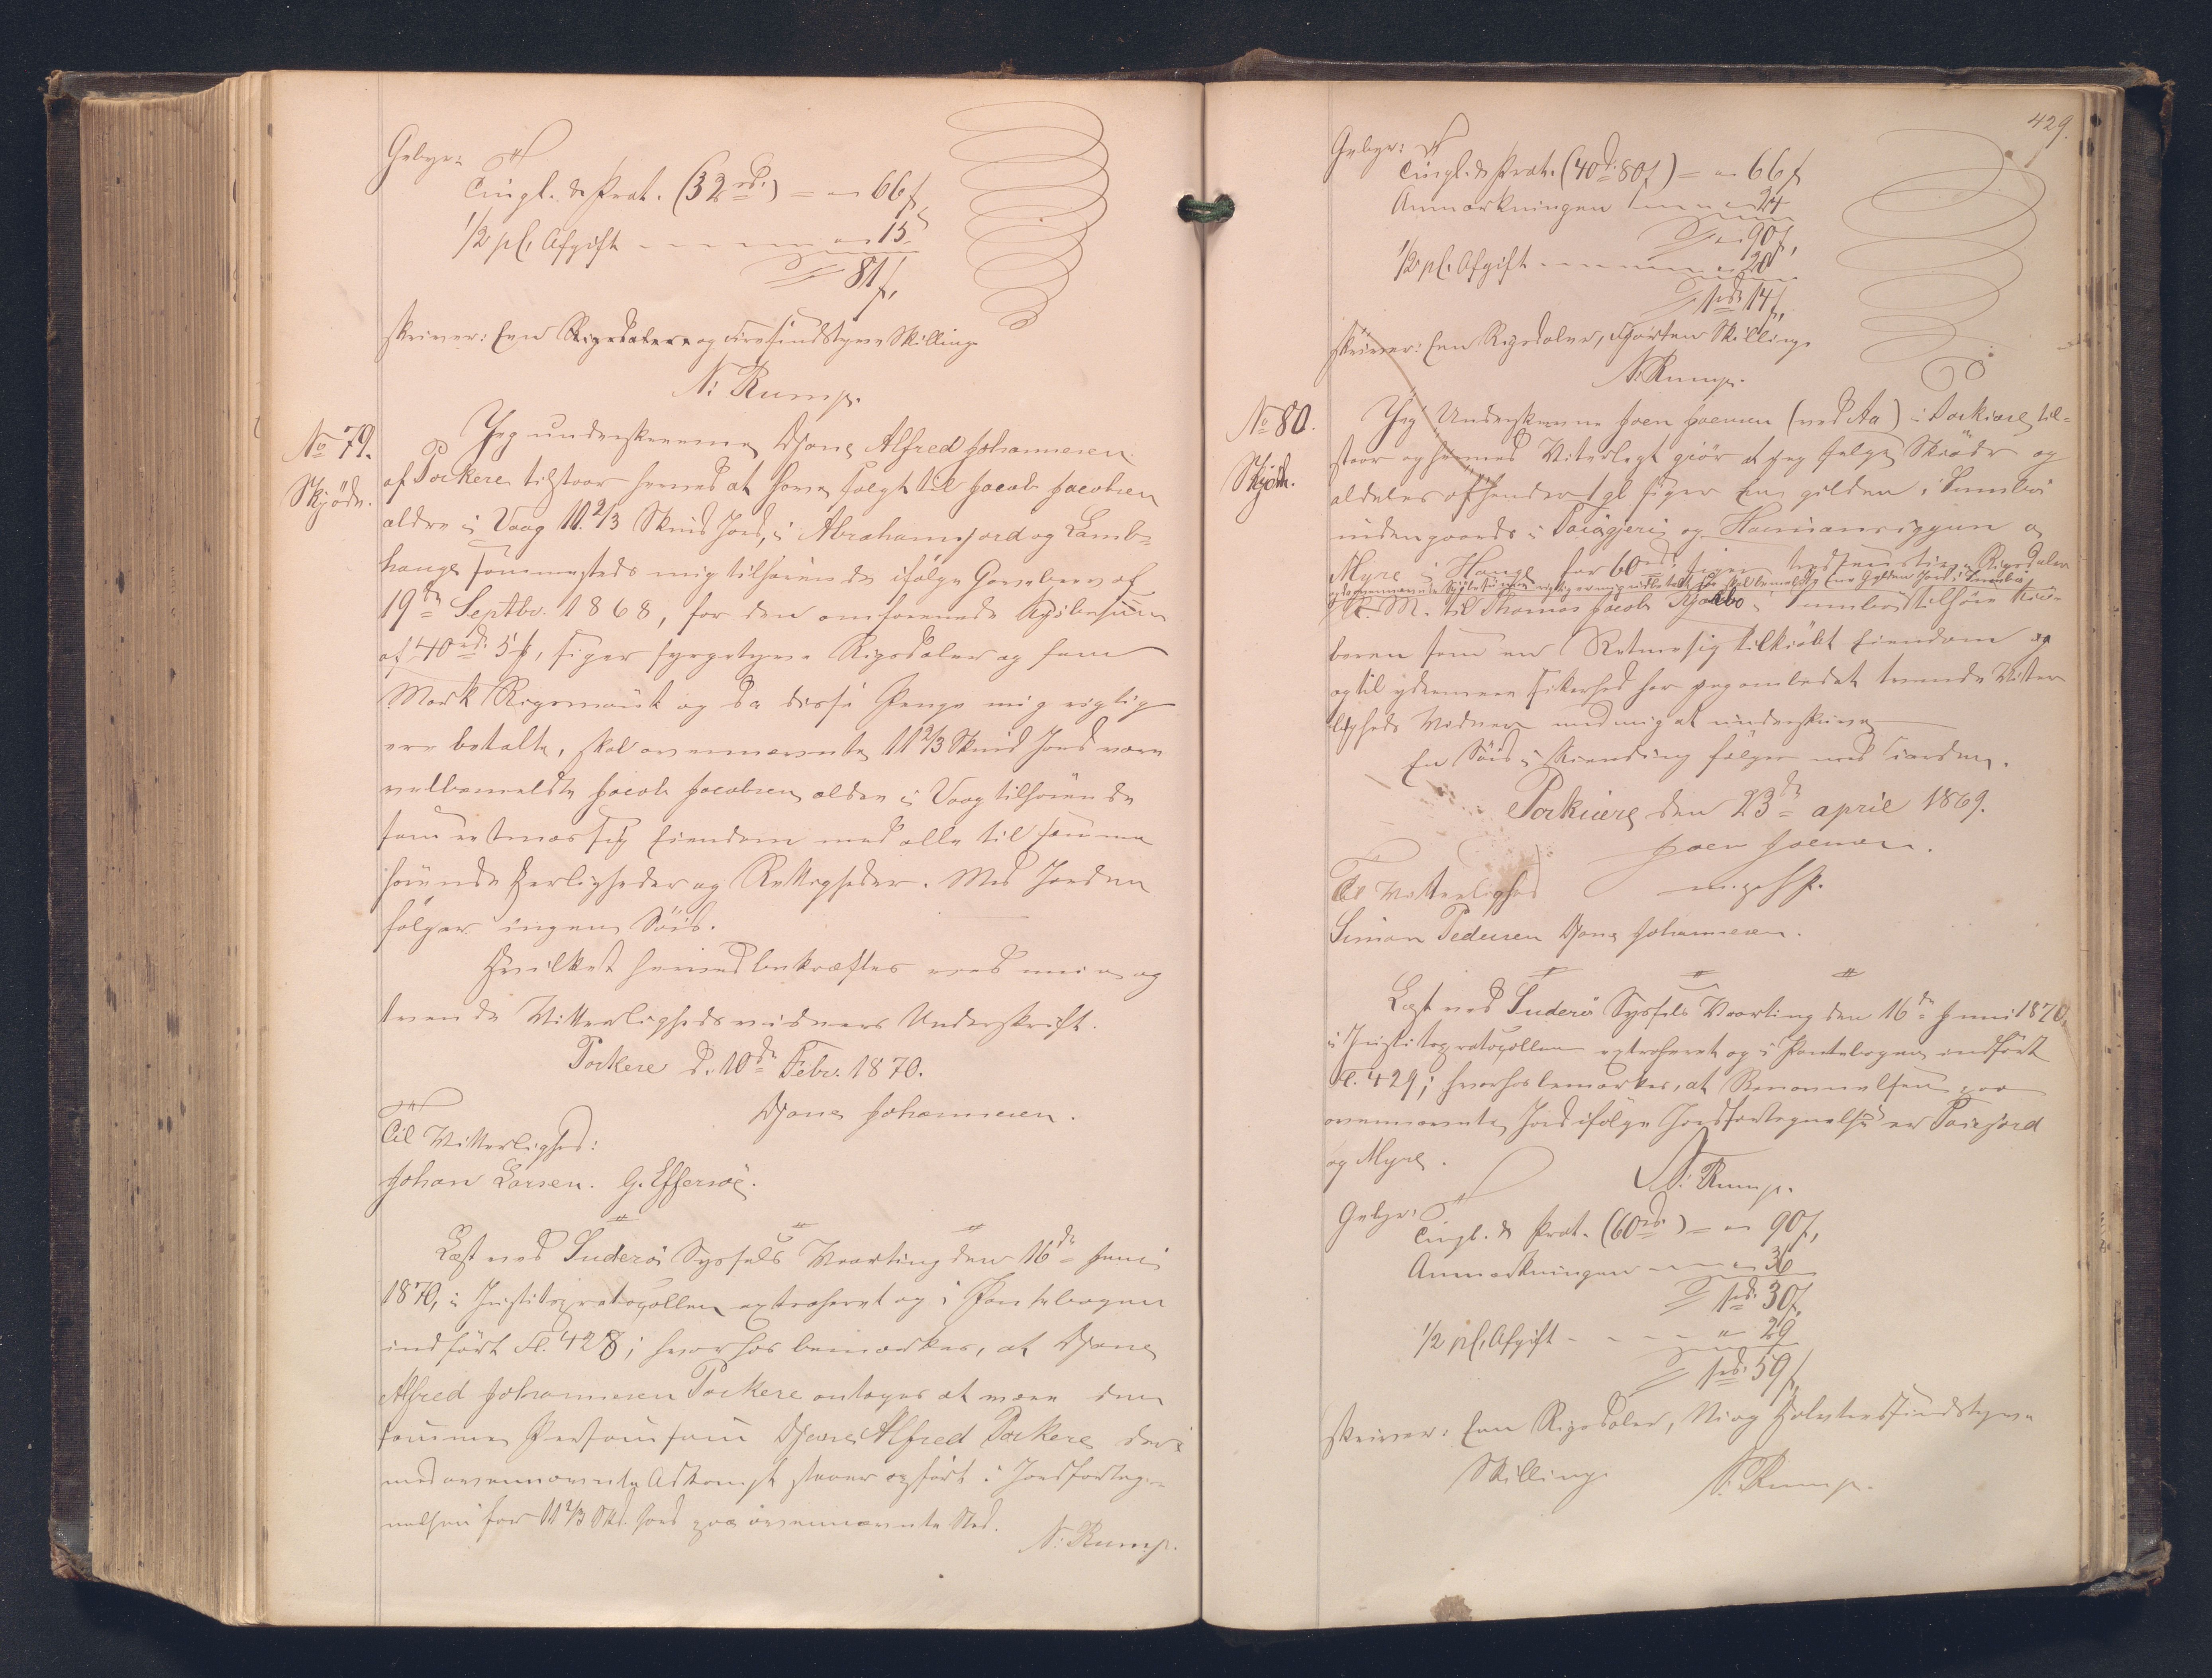 Gebyr:
Tingl. & Prot. (32 rd.) = „ 66 ß
1/2 pCt. Afgift - - - „ 15
81 ß,
skriver: Een Rigsdaler og Fiirsindstyve Skilling
N. Rump.
No 79.
Skjöde.
Jeg underskrevne Djone Alfred Johannesen
af Porkere tilstaar herved at have solgt til Jacob Jacobsen
ældre i Vaag 11 2/3 Skind Jord, i Abrahamsjord og Lamb-
hauge sammesteds mig tilhørende ifølge Gavebrev af
19de Septbr. 1868, for den omforenede Kjöbesum
af 40 rd. 5 ß, siger fyrgetyve Rigsdaler og fem
Mark Rigsmönt og da disse Penge mig rigtig
ere betalte, skal ovennævnte 11 2/3 Skind Jord være
velbemeldte Jacob Jacobsen ældre i Vaag tilhørende
som retmæssig Eiendom med alle til samme
hørende Herligheder og Rettigheder. Med Jorden
følger ingen Söid.
Hvilket herved bekræftes ved min og
tvende Vitterlighedsvidners Underskrift.
Porkere d. 10de Febr. 1870.
Djone Johannesen.
Til Vitterlighed:
Johan Larsen. G. Effersöe.
Læst ved Suderö Syssels Vaarting den 16de Juni
1870, i Justitsprotocollen extraheret og i Pantebogen
indfört Fl. 428; hvorhos bemærkes, at Djone
Alfred Johannesen Porkere antages at være den
samme Person som Djone Alfred Porkere der
med ovennævnte Adkomst staaer opfört i Jordforteg-
nelsen for 11 2/3 Skd. Jord paa ovennævnte Sted.
N. Rump.
429.
Gebyr:
Tingl. & Prot. (40 rd. 80 ß) = „ 66 ß
Anmærkningen - - - „ 24
„ 90 ß,
1/2 pCt. Afgift - - - „ 20
1 rd. 14 ß,
skriver: Een Rigsdaler, Fjorten Skilling
N. Rump.
No 80.
Skjöde.
Jeg Underskrevne Joen Joensen (ved Aa) i Porkere til-
staar og hermed Viterlegt giör at jeg selger Skiöder og
aldeles afhender 1 gl siger Een gylden i Sumbö
indengaards i og
Myre i Hauge for 60 rd. siger tredsenstive Rigsdaler
R. M. til Thomas Jacob Kjærbo i Sumbö tilhöre
som en Retmesig tilkiöbt Eiendom og
og til ydermere Sikerhed har jeg ombedet tvende Viter
ligheds Vidner med mig at underskrive
En Söid i Kvending følger med Jorden.
Porkiere den 23de april 1869.
Joen Joensen.
m. p.
Til Vitterlighed
Simon Pedersen Djone Johannesen.
Læst ved Suderö Syssels Vaarting den 16de Juni 1870,
i Justitsprotocollen extraheret og i Pantebogen indfört
Fl. 429; hvorhos bemærkes, at Benævnelsen paa
ovennævnte Jord ifölge Jordfortegnelsen er
og Myre.
N. Rump.
Gebyr:
Tingl. & Prot. (60 rd.) = „ 90 ß,
Anmærkningen - - - „ 36
1 rd. 30 ß,
1/2 pCt. Afgift - - - „ 29
1 rd. 59 ß,
skriver: Een Rigsdaler, Ni og Halvtredsindstyve
Skilling
N. Rump.